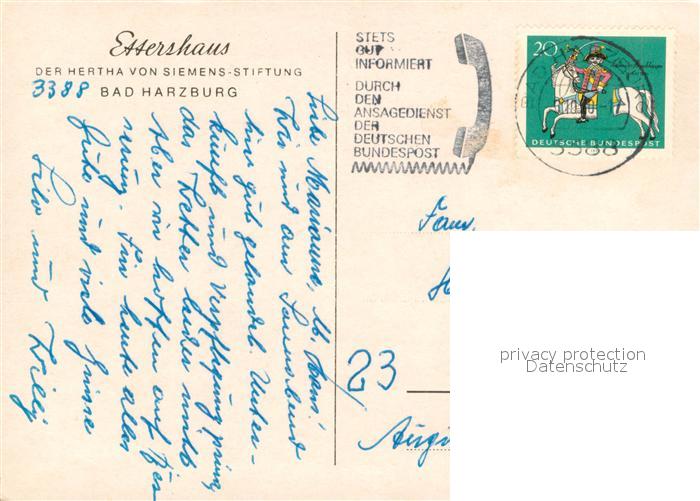 Ettershaus
DER HERTHA VON SIEMENS-STIFTUNG
3388 BAD HARZBURG
STETS
GUT
INFORMIERT
DURCH
DEN
ANSAGEDIENST
DER
DEUTSCHEN
BUNDESPOST
20
DEUTSCHE BUNDESPOST
3388
Liebe Marianne, lb. Hans!
Wir sind am Sonnabend
hier gut gelandet. Unter-
kunft und Verpflegung prima
das Wetter leider nicht
Aber wir hoffen auf Bes-
serung. Für heute alles
Gute und viele Grüsse
und Willy
Fam.
23
privacy protection
Datenschutz